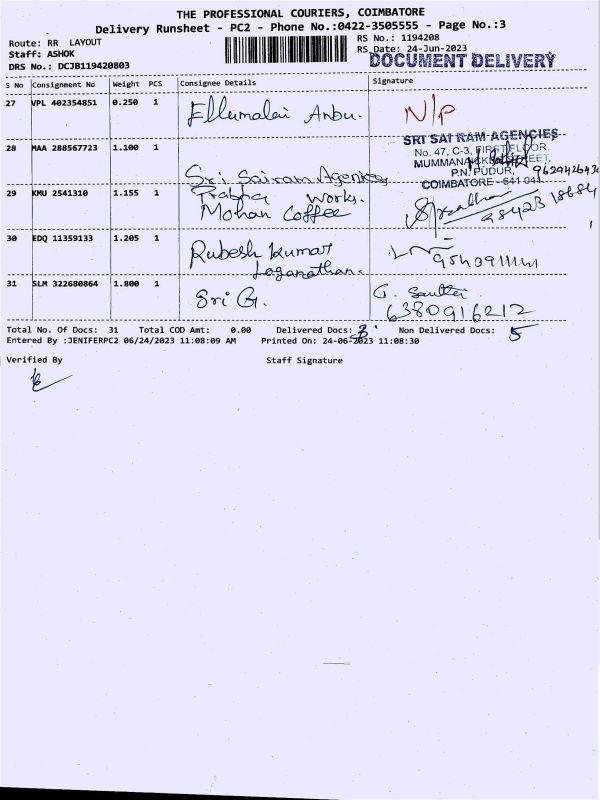 THE PROFESSIONAL COURIERS, COIMBATORE
Delivery Runsheet - PC2 - Phone No.:0422-3505555 - Page No.:3
Route: RR LAYOUT
Staff: ASHOK
DRS No.: DCJB119420803
RS No.: 1194208
RS Date: 24-Jun-2023
DOCUMENT DELIVERY
S No Consignment No Weight PCS Consignee Details Signature
27 VPL 402354851 0.250 1 Ellumalai Anbu. N/P
28 MAA 288567723 1.100 1 Sri Sairam Agencies
SRI SAI RAM AGENCIES
No. 47, C-3, FIRST FLOOR,
STREET,
P.N. PUDUR,
COIMBATORE - 641 041
29 KMU 2541310 1.155 1 Prabha Works.
Mohan Coffee
30 EDQ 11359133 1.205 1 Rubesh Kumar
Loganathan.
31 SLM 322680864 1.800 1 Sri G. G.
6380916212
Total No. Of Docs: 31 Total COD Amt: 0.00 Delivered Docs: Non Delivered Docs: 5
Entered By :JENIFERPC2 06/24/2023 11:08:09 AM Printed On: 24-06-2023 11:08:30
Verified By Staff Signature